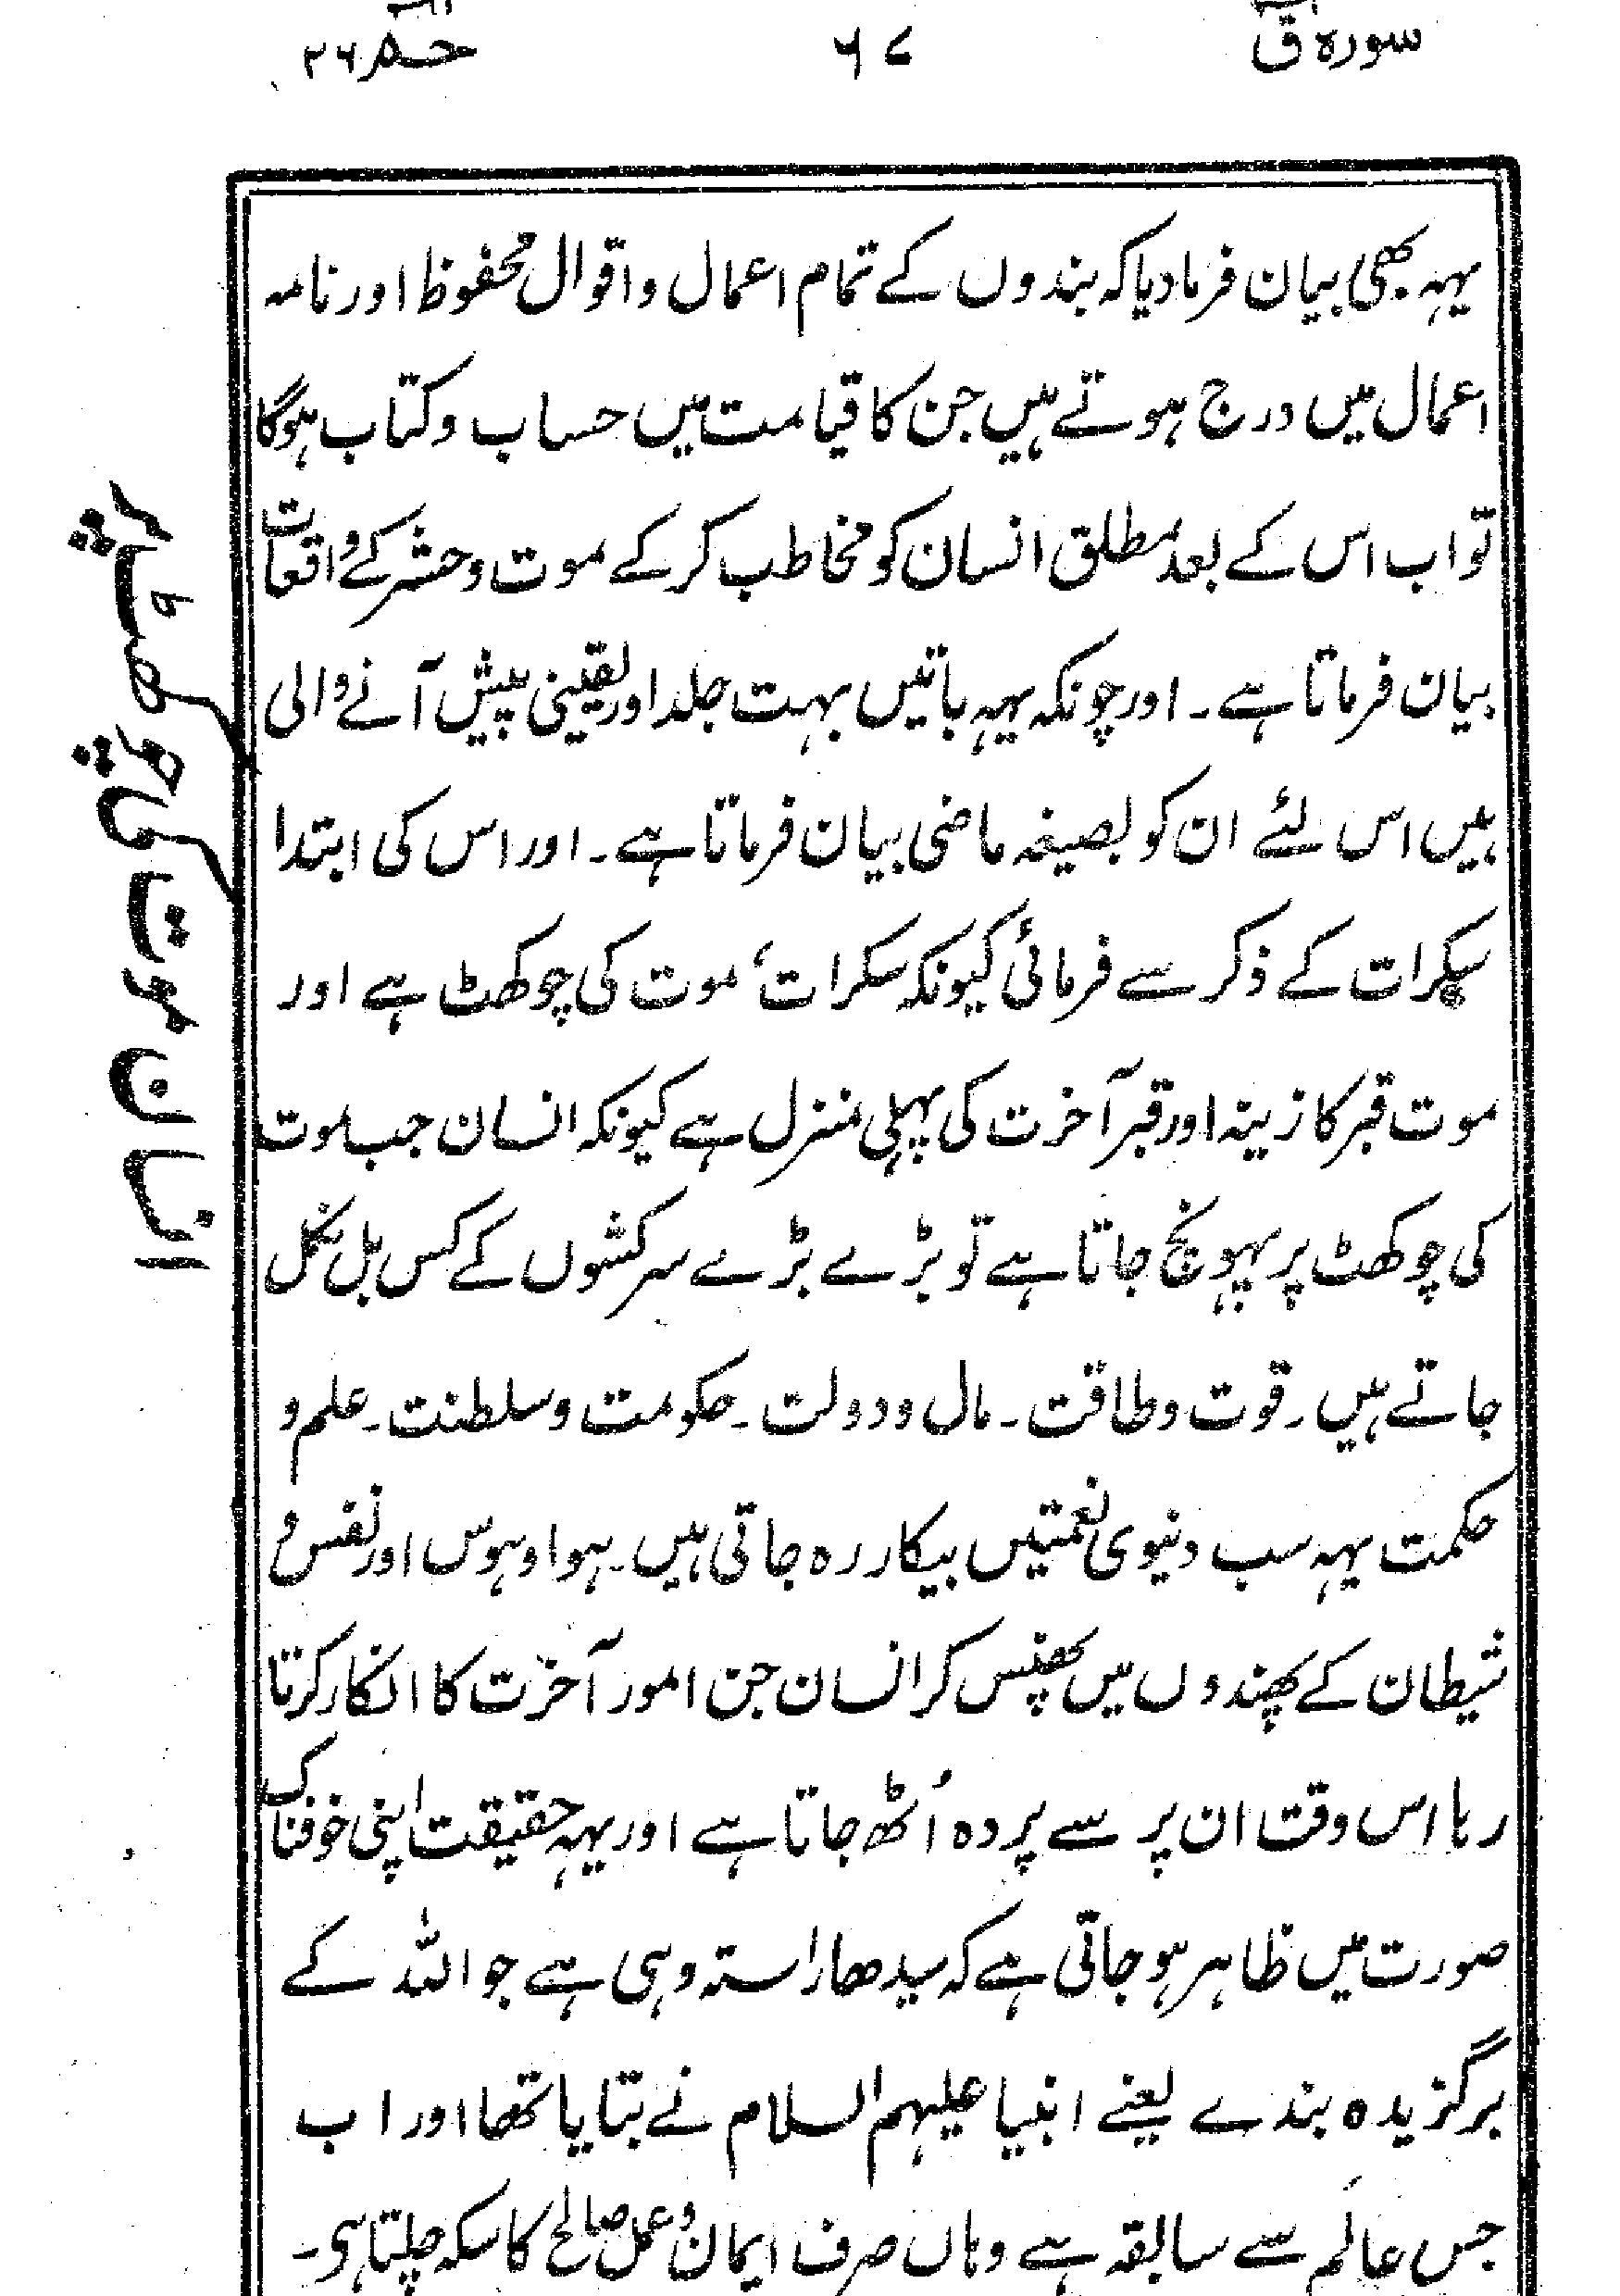 سورہ ق ۶۷ حٰم ۲۶
یہہ بھی بیان فرمادیا کہ بندوں کے تمام اعمال و اقوال محفوظ اور نامہ
اعمال میں درج ہوتے ہیں جن کا قیامت میں حساب و کتاب ہوگا
تو اب اس کے بعد مطلق انسان کو مخاطب کر کے موت و حشر کے واقعات
بیان فرماتا ہے۔ اور چونکہ یہہ باتیں بہت جلد اور یقینی پیش آنے والی
ہیں اس لئے ان کو بصیغہ ماضی بیان فرماتا ہے۔ اور اس کی ابتدا
سکرات کے ذکر سے فرمائی کیونکہ سکرات، موت کی چوکھٹ ہے اور
موت قبر کا زینہ اور قبر آخرت کی پہلی منزل ہے کیونکہ انسان جب موت
کی چوکھٹ پر پہونچ جاتا ہے تو بڑے بڑے سرکشوں کے کس بل نکل
جاتے ہیں۔ قوت و طاقت۔ مال و دولت۔ حکومت و سلطنت۔ علم و
حکمت یہہ سب دنیوی نعمتیں بیکار رہ جاتی ہیں۔ ہوا و ہوس اور نفس و
شیطان کے پھندوں میں پھنس کر انسان جن امور آخرت کا انکار کرتا
رہا اس وقت ان پر سے پردہ اُٹھ جاتا ہے اور یہہ حقیقت اپنی خوفناک
صورت میں ظاہر ہو جاتی ہے کہ سیدھا راستہ وہی ہے جو اللہ کے
برگزیدہ بندے یعنے انبیا علیہم السلام نے بتایا تھا اور اب
جس عالَم سے سابقہ ہے وہاں صرف ایمان و عمل صالح کا سکہ چلتا ہی۔
انسان موت